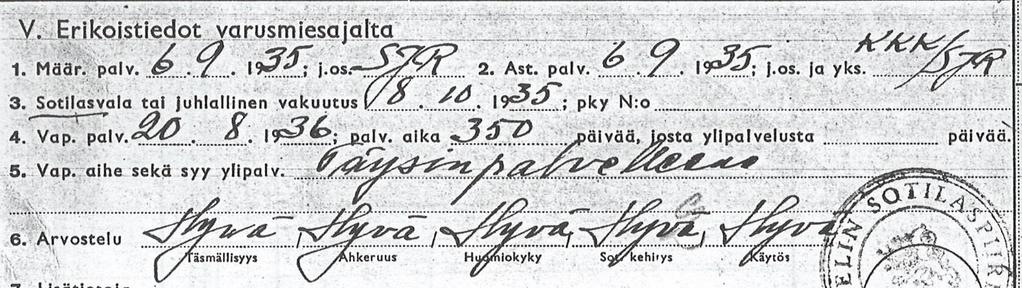 V. Erikoistiedot varusmiesajalta
1. Määr. palv. 6.9.1935; j.os. SJR 2. Ast. palv. 6.9.1935; j.os. ja yks. KKK/SJR
3. Sotilasvala tai juhlallinen vakuutus 18.10.1935; pky N:o
4. Vap. palv. 20.8.1936; palv. aika 350 päivää, josta ylipalvelusta päivää.
5. Vap. aihe sekä syy ylipalv. Täysinpalvelleena
6. Arvostelu Hyvä, Hyvä, Hyvä, Hyvä, Hyvä
Täsmällisyys Ahkeruus Huomiokyky Sot. kehitys Käytös
ELIN SOTILASPIIRI
7. Lisätietoja